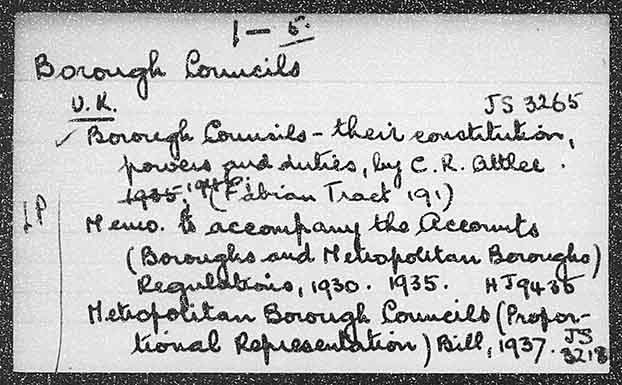 1 — 5.
Borough Councils
U.K.
JS 3265
✓ Borough Councils - their constitution,
powers and duties, by C. R. Attlee.
(Fabian Tract 191)
IP
Memo. to accompany the Accounts
(Boroughs and Metropolitan Boroughs)
Regulations, 1930. 1935. HJ9435
Metropolitan Borough Councils (Propor-
tional Representation) Bill, 1937. JS
3218